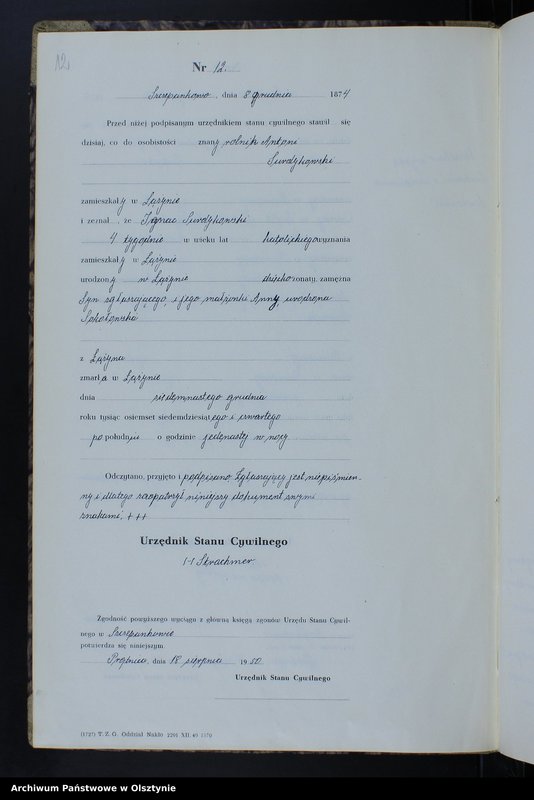 12.
Nr 12.
Szczepankowo, dnia 8 grudnia 1874
Przed niżej podpisanym urzędnikiem stanu cywilnego stawił się
dzisiaj, co do osobistości znany rolnik Antoni
Surdykowski
zamieszkały w Łążynie
i zeznał, że Ignac Surdykowski
4 tygodnie w wieku lat katolickiego wyznania
zamieszkały w Łążynie
urodzony w Łążynie dziecko żonaty, zamężna
Syn zgłaszającego i jego małżonki Anny urodzona
Sokołowska
z Łążyna
zmarła w Łążynie
dnia siedemnastego grudnia
roku tysiąc osiemset siedemdziesiątego i czwartego
po południu o godzinie jedenastej w nocy
Odczytano, przyjęto i podpisano Zgłaszający jest niepiśmien-
ny i dlatego zaopatrzył niniejszy dokument swymi
znakami, + + +
Urzędnik Stanu Cywilnego
/-/ Strachmer.
Zgodność powyższego wyciągu z główną księgą zgonów Urzędu Stanu Cywil-
nego w Szczepankowie
potwierdza się niniejszym
dnia 18 sierpnia 1950
Urzędnik Stanu Cywilnego
(1727) T. Z. G. Oddział Nakło 2291 XII. 49 1370
Archiwum Państwowe w Olsztynie